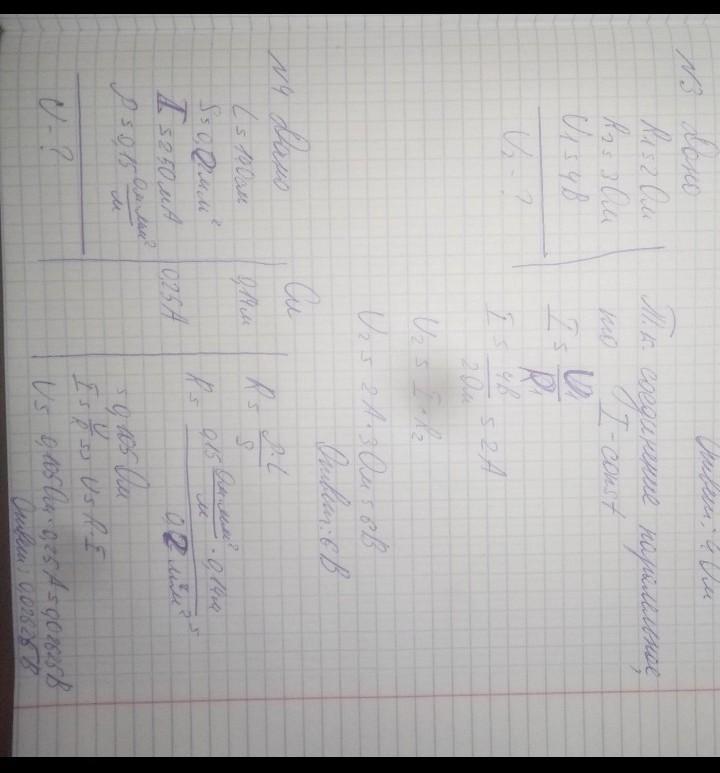 Ответ: 4 Ом
N3 Дано
R₁ = 2 Ом
R₂ = 3 Ом
U₁ = 4В
U₂ - ?
Т.к. соединение паралельное,
то I - const
I = U₁/R₁
I = 4В/2Ом = 2А
U₂ = I · R₂
U₂ = 2А · 3Ом = 6В
Ответ: 6В
N4 Дано
L = 140см
S = 0,2мм²
I = 250мА
ρ = 0,15 Ом·мм²/м
U - ?
Си
0,14м
0,25А
R = ρ·L/S
R = 0,15 Ом·мм²/м · 0,14м / 0,2 мм² =
= 0,105 Ом
I = U/R => U = R · I
U = 0,105Ом · 0,25А = 0,02625В
Ответ: 0,02625В